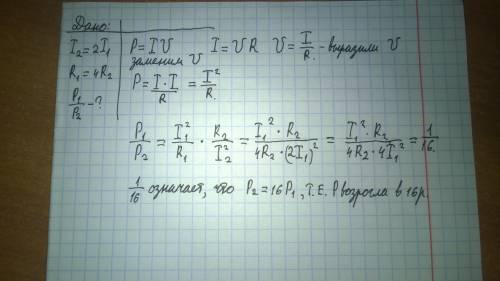 Дано:
I₂=2I₁
R₁=4R₂
P₁/P₂ - ?
P=IU I=UR U=I/R - выразили U
заменим U
P=I·I/R=I²/R
P₁/P₂=I₁²/R₁·R₂/I₂²=I₁²·R₂/4R₂·(2I₁)²=I₁²·R₂/4R₂·4I₁²=1/16.
1/16 означает, что P₂=16P₁, т.е. P возрогла в 16р.